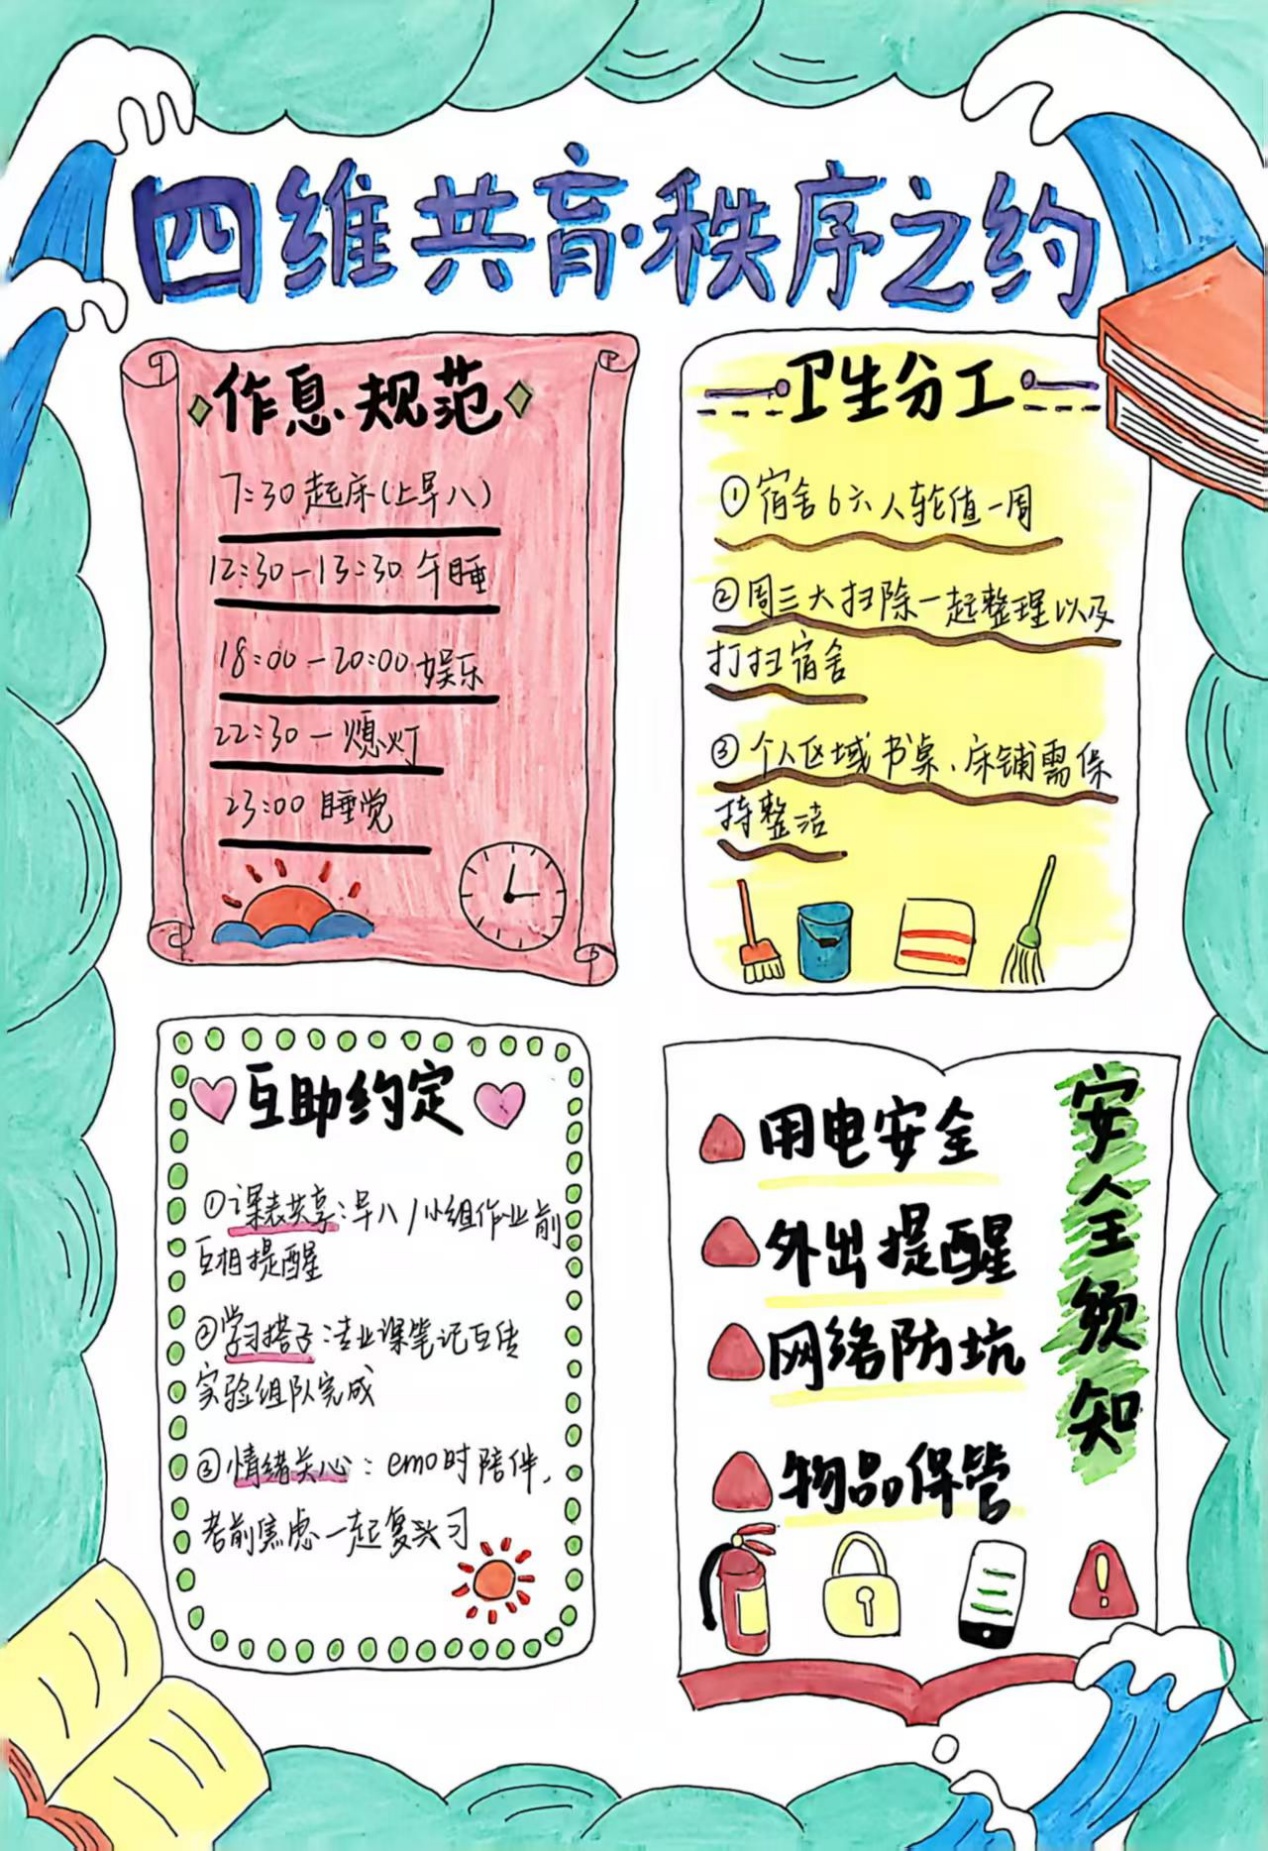 四维共育·秩序之约
作息规范
7:30起床(上早八)
12:30-13:30 午睡
18:00-20:00 娱乐
22:30-熄灯
23:00 睡觉
卫生分工
①宿舍6六人轮值一周
②周三大扫除一起整理以及
打扫宿舍
③个人区域书桌、床铺需保
持整洁
互助约定
①课表共享:早八/小组作业前
互相提醒
②学习搭子:专业课笔记互传
实验组队完成
③情绪关心:emo时陪伴,
考前焦虑一起复习
安全须知
用电安全
外出提醒
网络防坑
物品保管